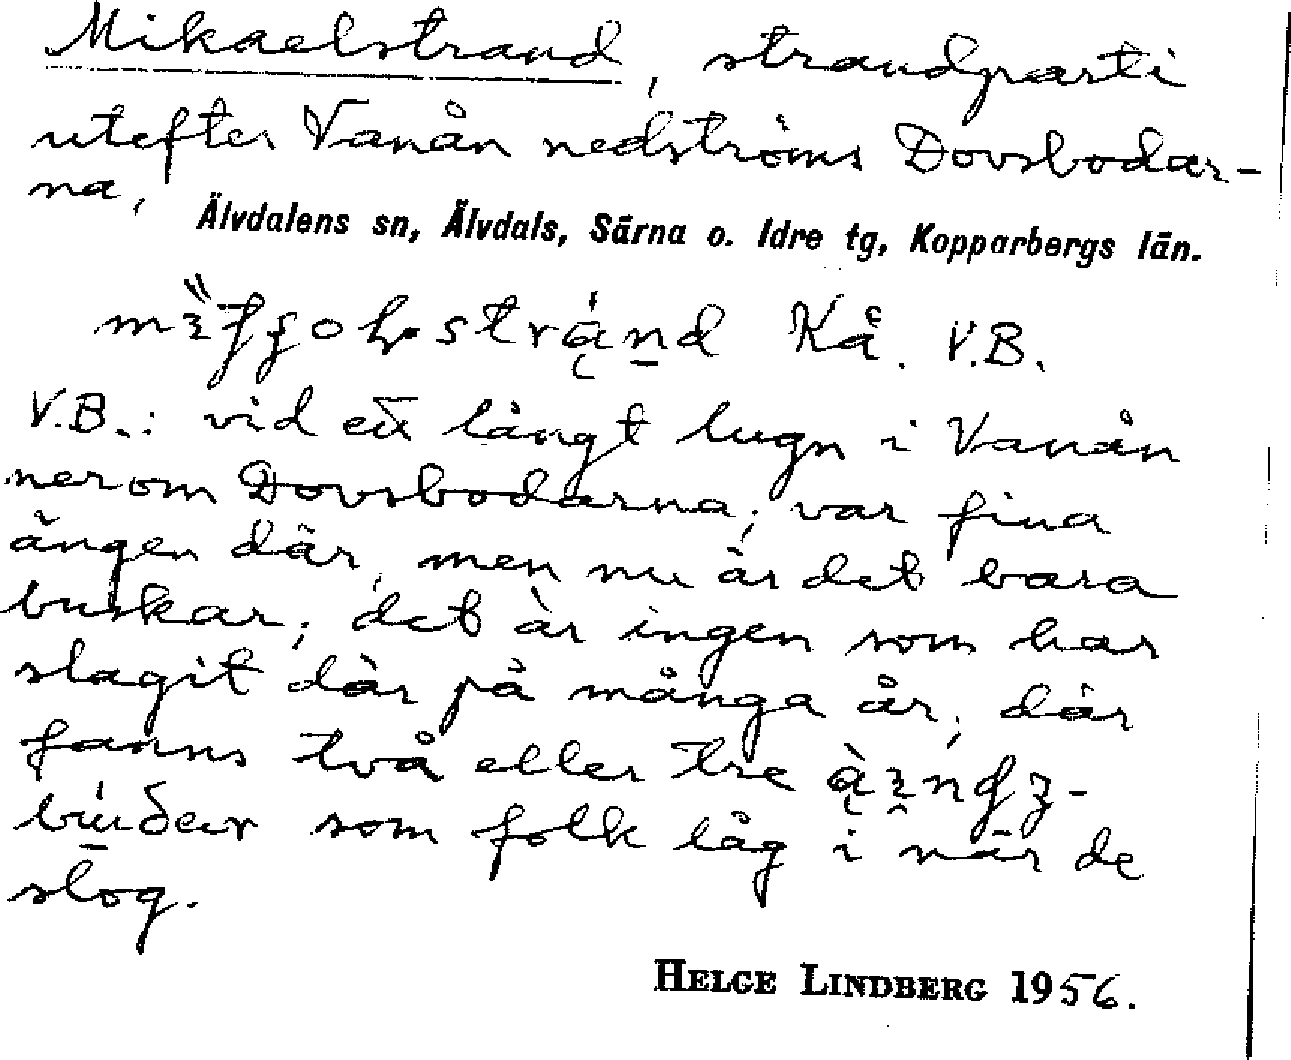 Mikaelstrand, strandparti
utefter Vanån nedströms Dovsbodar-
na,
Älvdalens sn, Älvdals, Särna o. Idre tg, Kopparbergs län.
strą́n̠d Kå. V.B.
V.B.: vid ett långt lugn i Vanån
nerom Dovsbodarna; var fina
ängen där, men nu är det bara
buskar; det är ingen som har
slagit där på många år; där
fanns två eller tre
som folk låg i när de
slog.
HELGE LINDBERG 1956.